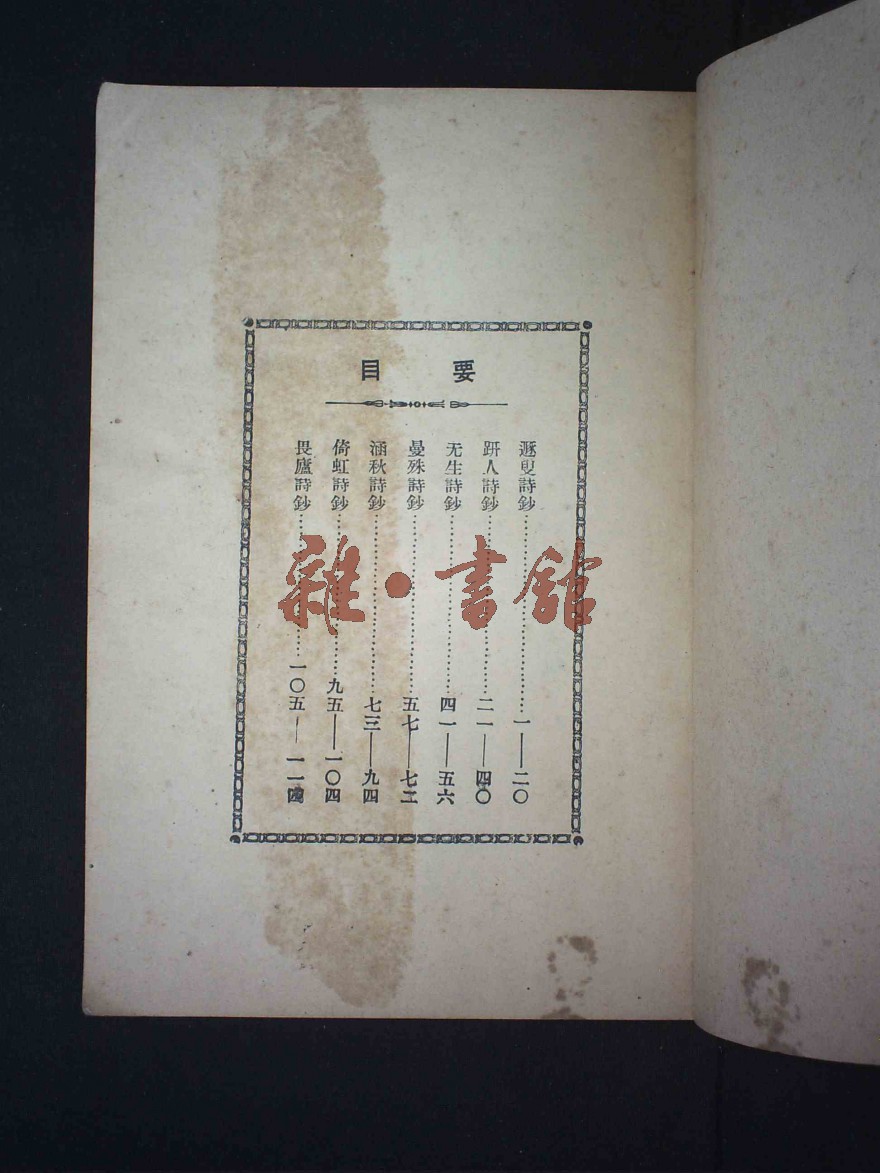 要目
遯叟詩鈔…………………一——二〇
趼人詩鈔…………………二一——四〇
无生詩鈔…………………四一——五六
曼殊詩鈔…………………五七——七二
涵秋詩鈔…………………七三——九四
倚虹詩鈔…………………九五——一〇四
畏廬詩鈔…………………一〇五——一一四
雜·書館